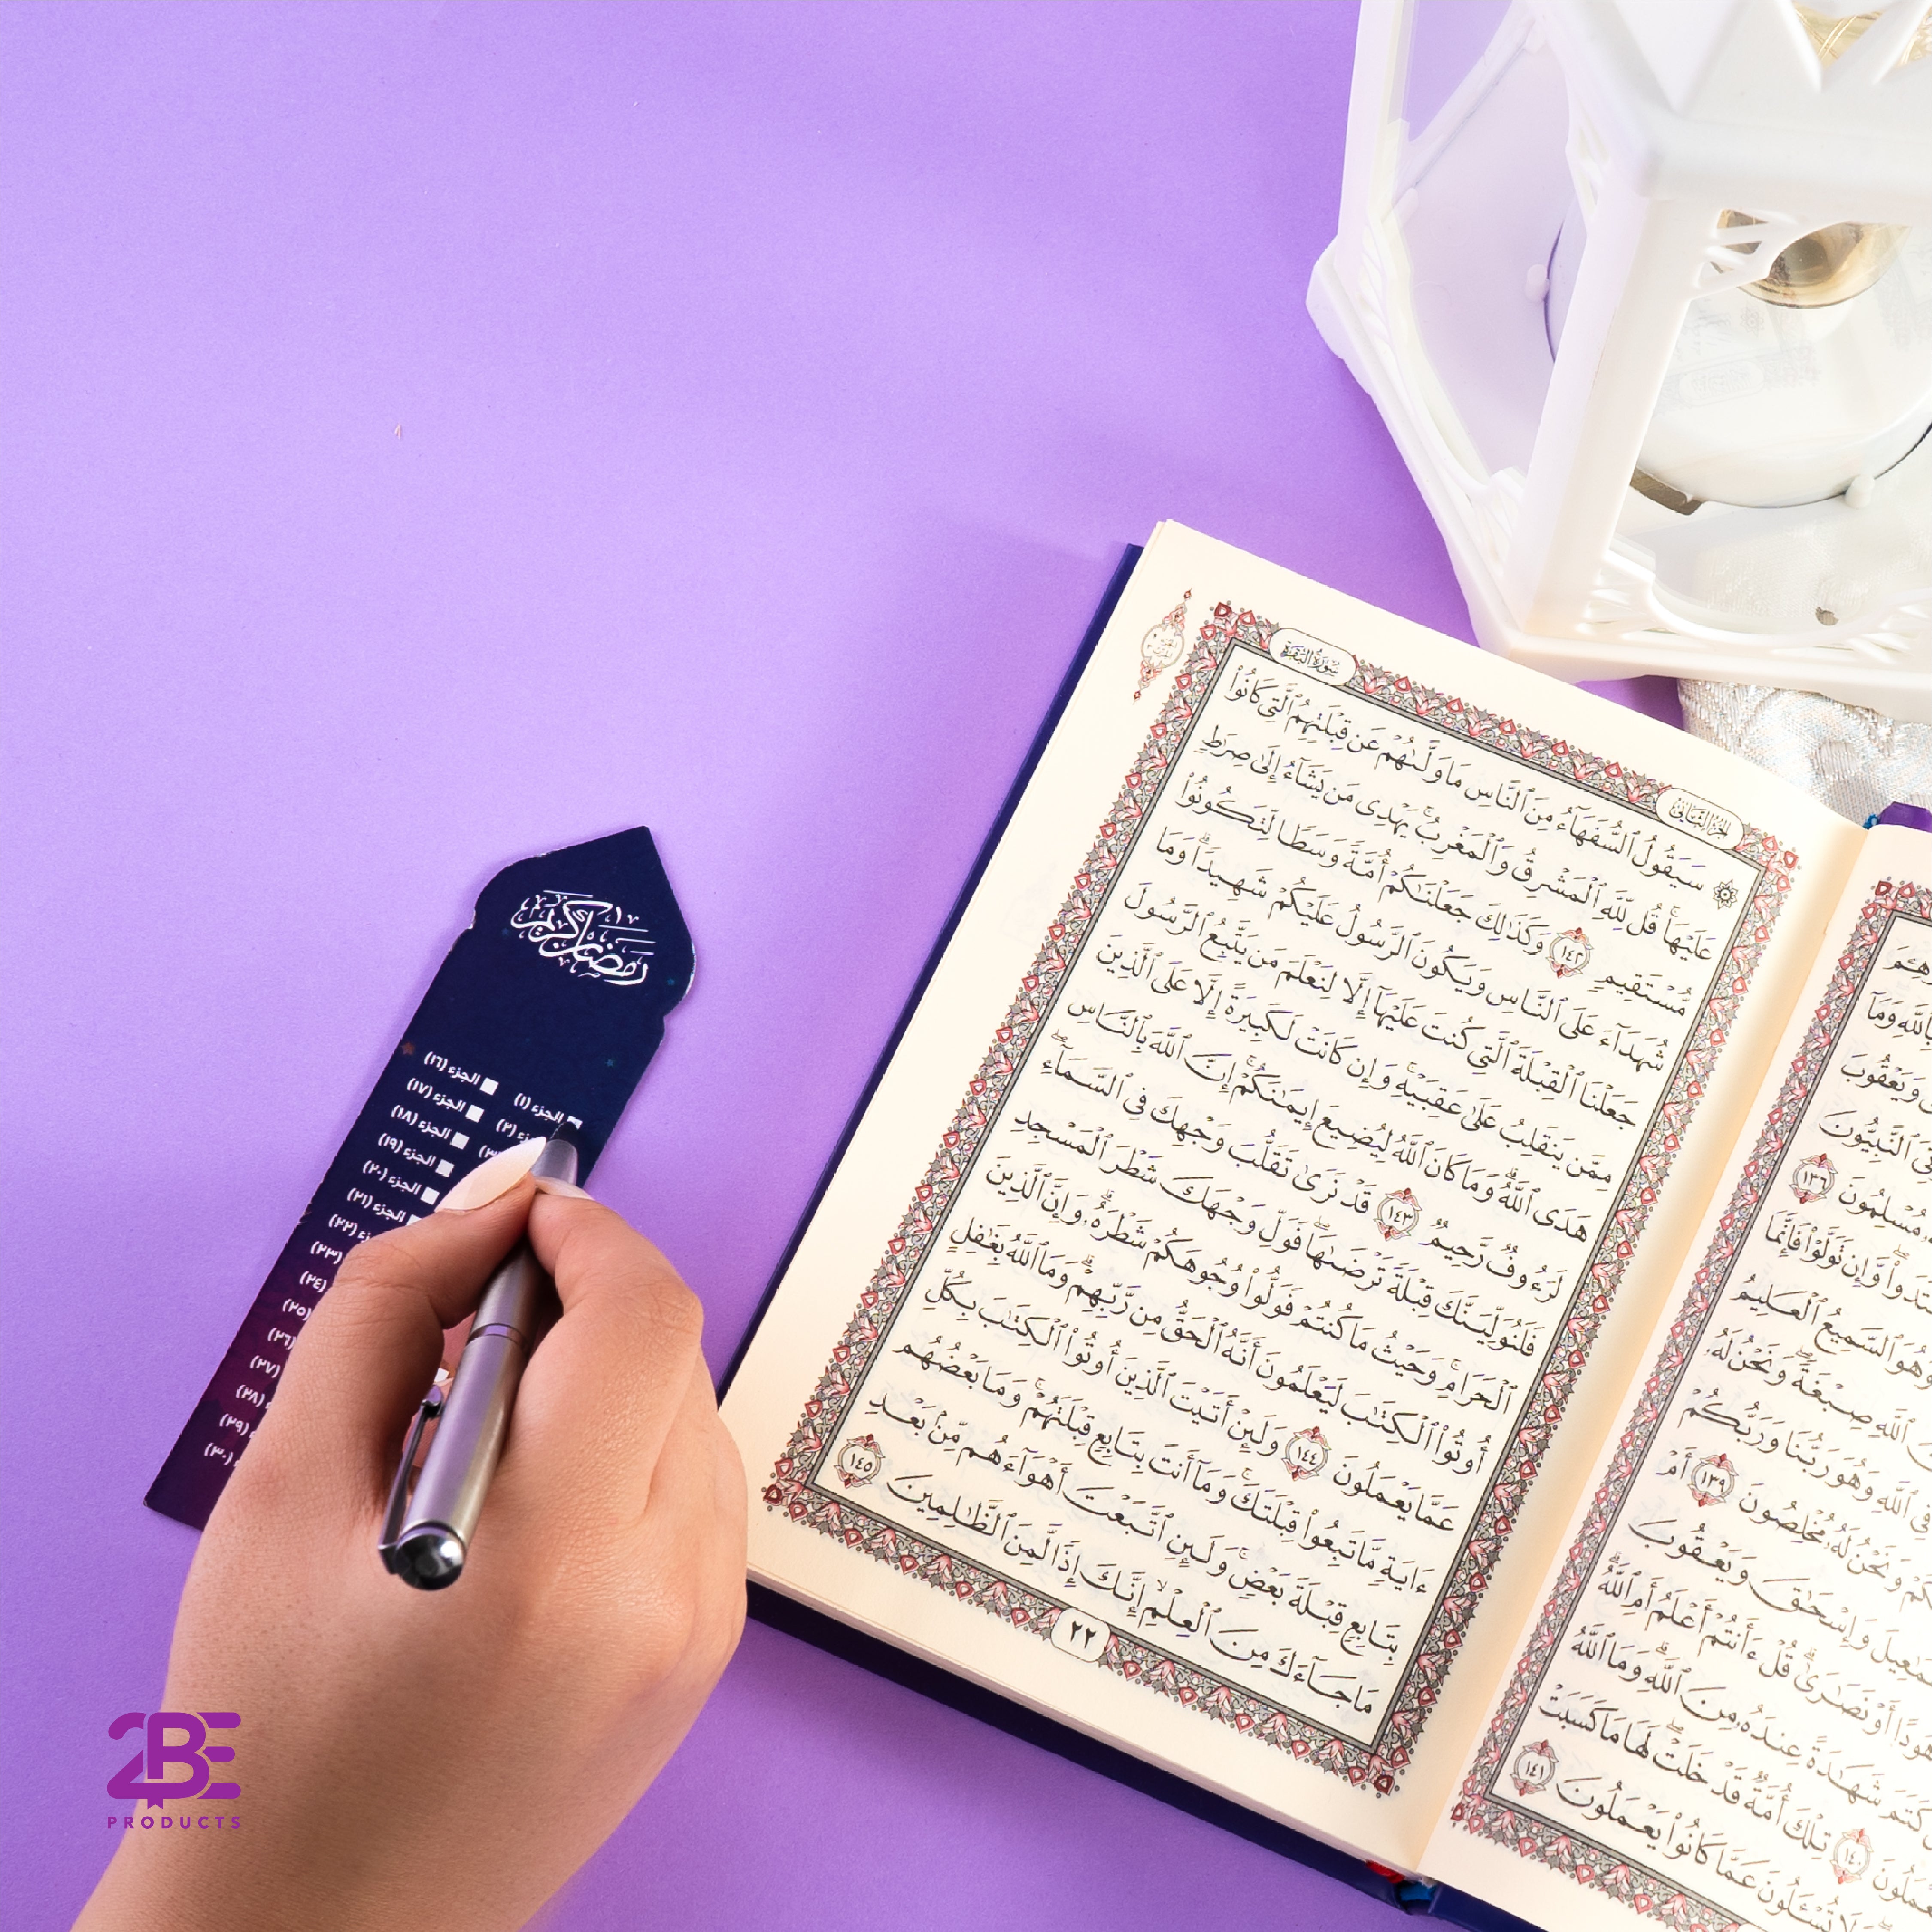 رمضان كريم
الجزء (١)
الجزء (١٦)
الجزء (١٧)
الجزء (١٨)
الجزء (١٩)
الجزء (٢٠)
الجزء (٢١)
(٢)
(٢٢)
(٢٣)
(٢٤)
(٢٥)
(٢٦)
(٢٧)
(٢٨)
(٢٩)
(٣٠)
الجزء الثاني
سورة البقرة
۞ سَيَقُولُ ٱلسُّفَهَآءُ مِنَ ٱلنَّاسِ مَا وَلَّىٰهُمْ عَن قِبْلَتِهِمُ ٱلَّتِى كَانُوا۟
عَلَيْهَا ۚ قُل لِّلَّهِ ٱلْمَشْرِقُ وَٱلْمَغْرِبُ ۚ يَهْدِى مَن يَشَآءُ إِلَىٰ صِرَٰطٍ
مُّسْتَقِيمٍ ١٤٢ وَكَذَٰلِكَ جَعَلْنَٰكُمْ أُمَّةً وَسَطًا لِّتَكُونُوا۟
شُهَدَآءَ عَلَى ٱلنَّاسِ وَيَكُونَ ٱلرَّسُولُ عَلَيْكُمْ شَهِيدًا ۗ وَمَا
جَعَلْنَا ٱلْقِبْلَةَ ٱلَّتِى كُنتَ عَلَيْهَآ إِلَّا لِنَعْلَمَ مَن يَتَّبِعُ ٱلرَّسُولَ
مِمَّن يَنقَلِبُ عَلَىٰ عَقِبَيْهِ ۚ وَإِن كَانَتْ لَكَبِيرَةً إِلَّا عَلَى ٱلَّذِينَ
هَدَى ٱللَّهُ ۗ وَمَا كَانَ ٱللَّهُ لِيُضِيعَ إِيمَٰنَكُمْ ۚ إِنَّ ٱللَّهَ بِٱلنَّاسِ
لَرَءُوفٌ رَّحِيمٌ ١٤٣ قَدْ نَرَىٰ تَقَلُّبَ وَجْهِكَ فِى ٱلسَّمَآءِ ۖ
فَلَنُوَلِّيَنَّكَ قِبْلَةً تَرْضَىٰهَا ۚ فَوَلِّ وَجْهَكَ شَطْرَ ٱلْمَسْجِدِ
ٱلْحَرَامِ ۚ وَحَيْثُ مَا كُنتُمْ فَوَلُّوا۟ وُجُوهَكُمْ شَطْرَهُۥ ۗ وَإِنَّ ٱلَّذِينَ
أُوتُوا۟ ٱلْكِتَٰبَ لَيَعْلَمُونَ أَنَّهُ ٱلْحَقُّ مِن رَّبِّهِمْ ۗ وَمَا ٱللَّهُ بِغَٰفِلٍ
عَمَّا يَعْمَلُونَ ١٤٤ وَلَئِنْ أَتَيْتَ ٱلَّذِينَ أُوتُوا۟ ٱلْكِتَٰبَ بِكُلِّ
ءَايَةٍ مَّا تَبِعُوا۟ قِبْلَتَكَ ۚ وَمَآ أَنتَ بِتَابِعٍ قِبْلَتَهُمْ ۚ وَمَا بَعْضُهُم
بِتَابِعٍ قِبْلَةَ بَعْضٍ ۚ وَلَئِنِ ٱتَّبَعْتَ أَهْوَآءَهُم مِّنۢ بَعْدِ
مَا جَآءَكَ مِنَ ٱلْعِلْمِ ۙ إِنَّكَ إِذًا لَّمِنَ ٱلظَّٰلِمِينَ ١٤٥
٢٢
بِٱللَّهِ وَمَآ
وَيَعْقُوبَ
ٱلنَّبِيُّونَ
مُسْلِمُونَ ١٣٦
وَّإِن تَوَلَّوْا۟ فَإِنَّمَا
وَهُوَ ٱلسَّمِيعُ ٱلْعَلِيمُ
ٱللَّهِ صِبْغَةً ۖ وَنَحْنُ لَهُۥ
فِى ٱللَّهِ وَهُوَ رَبُّنَا وَرَبُّكُمْ
وَنَحْنُ لَهُۥ مُخْلِصُونَ ١٣٩ أَمْ
وَإِسْحَٰقَ وَيَعْقُوبَ
هُودًا أَوْ نَصَٰرَىٰ ۗ قُلْ ءَأَنتُمْ أَعْلَمُ أَمِ ٱللَّهُ ۗ
كَتَمَ شَهَٰدَةً عِندَهُۥ مِنَ ٱللَّهِ ۗ وَمَا ٱللَّهُ
١٤٠ تِلْكَ أُمَّةٌ قَدْ خَلَتْ ۖ لَهَا مَا كَسَبَتْ
تُسْـَٔلُونَ عَمَّا كَانُوا۟ يَعْمَلُونَ ١٤١
2BE
PRODUCTS